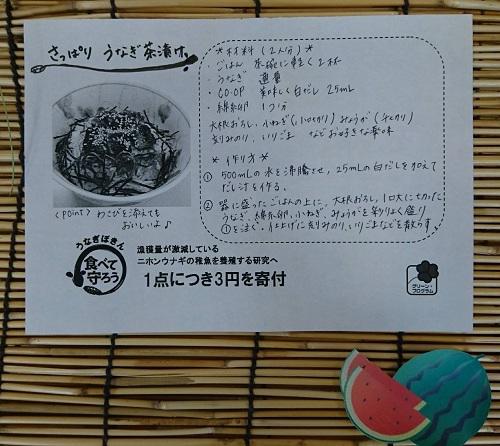 さっぱり うなぎ茶漬け
＊材料（2人分）＊
・ごはん 茶碗に軽く2杯
・うなぎ 適量
・CO・OP 美味しく白だし 25mL
・錦糸卵 1コ分
大根おろし、小ねぎ(小口切り)みょうが(千切り)
刻みのり、いりごま などお好きな薬味
＊作り方＊
① 500mLの水を沸騰させ、25mLの白だしを加えて
だし汁を作る。
② 器に盛ったごはんの上に、大根おろし、1口大に切った
うなぎ、錦糸卵、小ねぎ、みょうがを彩りよく盛り
①を注ぐ。仕上げに刻みのり、いりごまなどを散らす。
〈Point〉わさびを添えても
おいしいよ♪
うなぎぼきん
食べて
守ろう
漁獲量が激減している
ニホンウナギの稚魚を養殖する研究へ
1点につき3円を寄付
グリーン・
プログラム